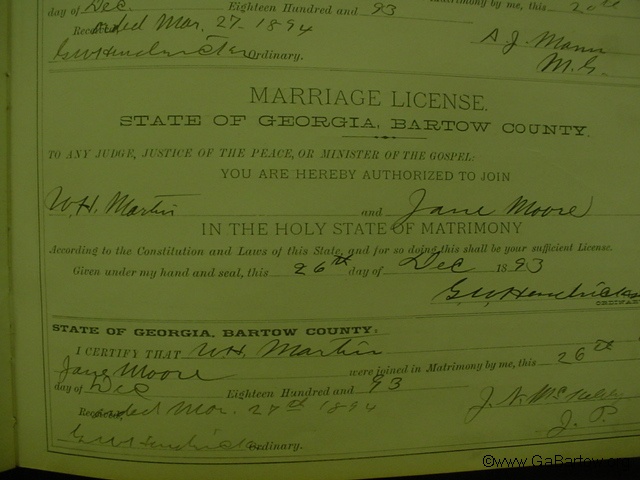 day of Dec. Eighteen Hundred and 93 Matrimony by me, this 20th
Recorded Mar. 27. 1894
G W Hendricks Ordinary.
A J. Mann
M. G.
MARRIAGE LICENSE.
STATE OF GEORGIA, BARTOW COUNTY.
TO ANY JUDGE, JUSTICE OF THE PEACE, OR MINISTER OF THE GOSPEL:
YOU ARE HEREBY AUTHORIZED TO JOIN
W. H. Martin and Jane Moore
IN THE HOLY STATE OF MATRIMONY
According to the Constitution and Laws of this State, and for so doing this shall be your sufficient License.
Given under my hand and seal, this 26th day of Dec 1893
G. W. Hendricks
ORDINARY
STATE OF GEORGIA, BARTOW COUNTY:
I CERTIFY THAT W. H. Martin
Jane Moore were joined in Matrimony by me, this 26th
day of Dec Eighteen Hundred and 93
Recorded Mar. 27th 1894
J. N.
J. P.
G W Hendricks Ordinary.
©www.GaBartow.com